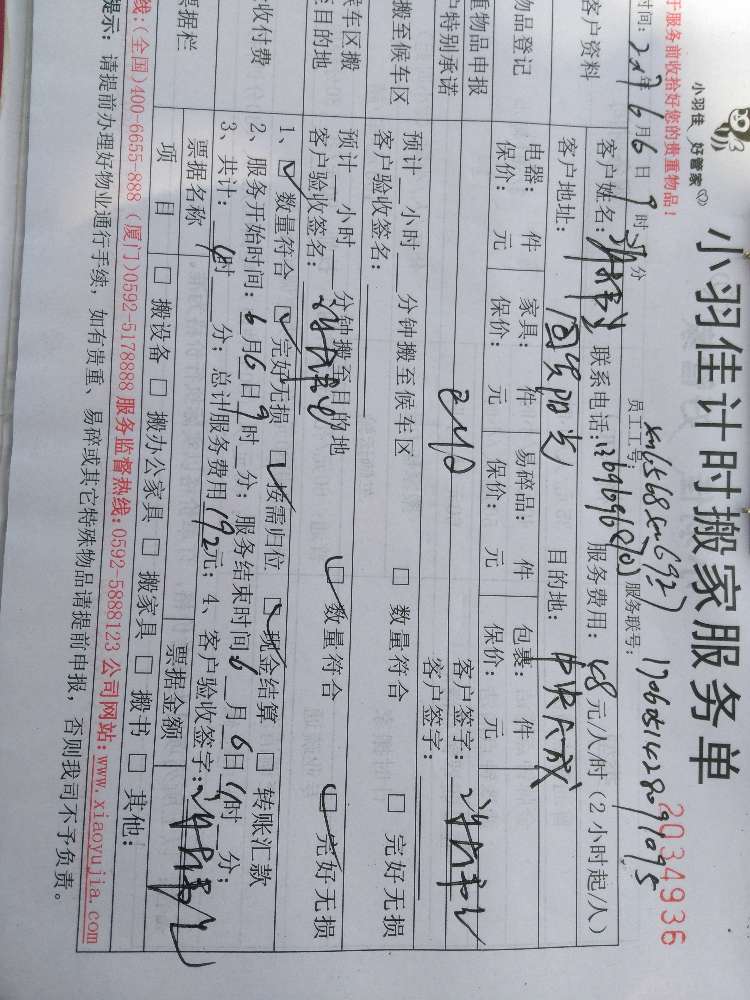 小羽佳 好管家
小羽佳计时搬家服务单
2034936
于服务前收拾好您的贵重物品!
员工工号:
服务联号:
时间: 2017年6月6日9时 分
客户资料
客户姓名:
联系电话:
服务费用: 48元/人/时(2小时起/人)
客户地址: 国贸阳光
目的地: 中央公城
物品登记
电器: 件 家具: 件 易碎品: 件 包裹: 件
保价: 元 保价: 元 保价: 元 保价: 元
重物品申报
客户签字:
户特别承诺
客户签字:
搬至候车区
预计 小时 分钟搬至候车区 □ 数量符合 □ 完好无损
客户验收签名:
候车区搬
至目的地
预计 小时 分钟搬至目的地 □ 数量符合 □ 完好无损
客户验收签名:
收付费
1、□ 数量符合 □ 完好无损 □ 按需归位 □ 现金结算 □ 转账汇款
2、服务开始时间: 6月6日9时 分; 服务结束时间 6月6日11时 分;
3、共计: 时 分; 总计服务费用192元; 4、客户验收签字:
票据栏
票据名称
票据金额
项 目
□ 搬设备 □ 搬办公家具 □ 搬家具 □ 搬书 □ 其他:
线:(全国)400-6655-888 (厦门)0592-5178888 服务监督热线:0592-5888123 公司网站:www.xiaoyujia.com
提示: 请提前办理好物业通行手续, 如有贵重、易碎或其它特殊物品请提前申报, 否则我司不予负责。